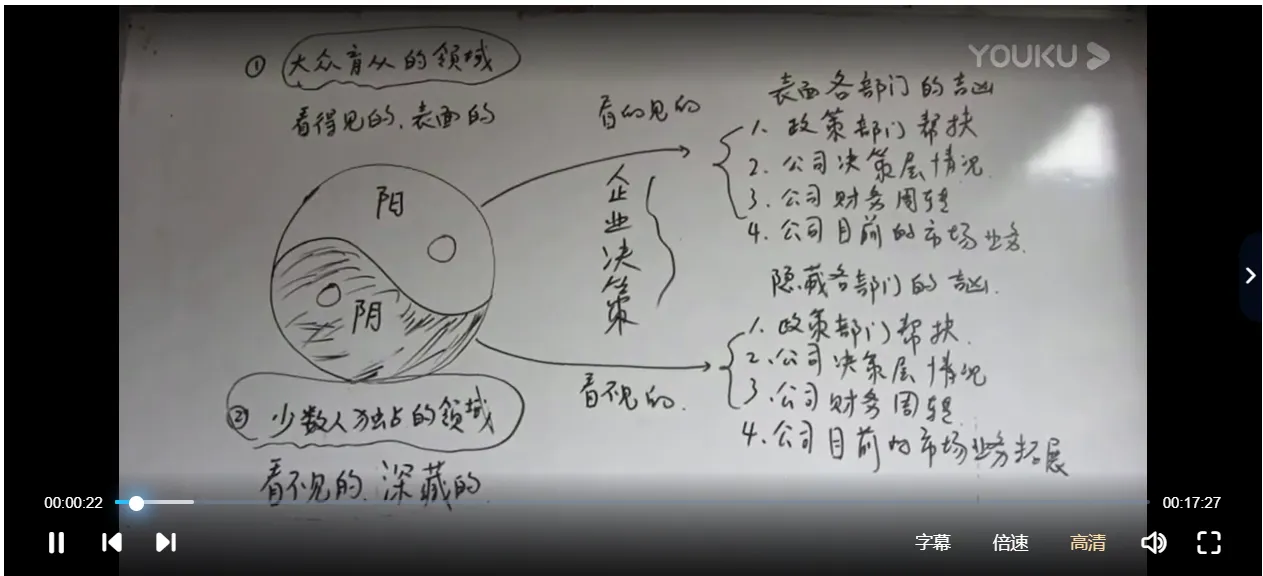 YOUKU
① 大众盲从的领域
看得见的、表面的
阳
阴
② 少数人独占的领域
看不见的、深藏的
看的见的
企业决策
看不见的.
表面各部门的吉凶
1. 政策部门帮扶
2. 公司决策层情况
3. 公司财务周转
4. 公司目前的市场业务
隐藏各部门的吉凶.
1. 政策部门帮扶.
2. 公司决策层情况
3. 公司财务周转
4. 公司目前的市场业务拓展
00:00:22
00:17:27
字幕 倍速 高清